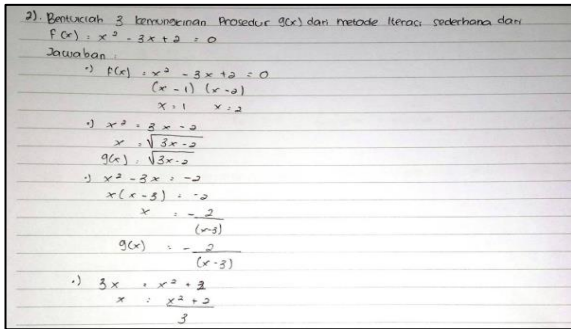 2). Bentuklah 3 kemungkinan Prosedur g(x) dari metode Iterasi sederhana dari
f(x) : x² - 3x + 2 = 0
Jawaban :
•) f(x) : x² - 3x + 2 = 0
(x - 1) (x - 2)
x = 1 x = 2
•) x² = 3x - 2
x = √3x - 2
g(x) : √3x - 2
•) x² - 3x = -2
x(x - 3) = -2
x = - 2
(x-3)
g(x) = - 2
(x - 3)
•) 3x = x² + 2
x = x² + 2
3